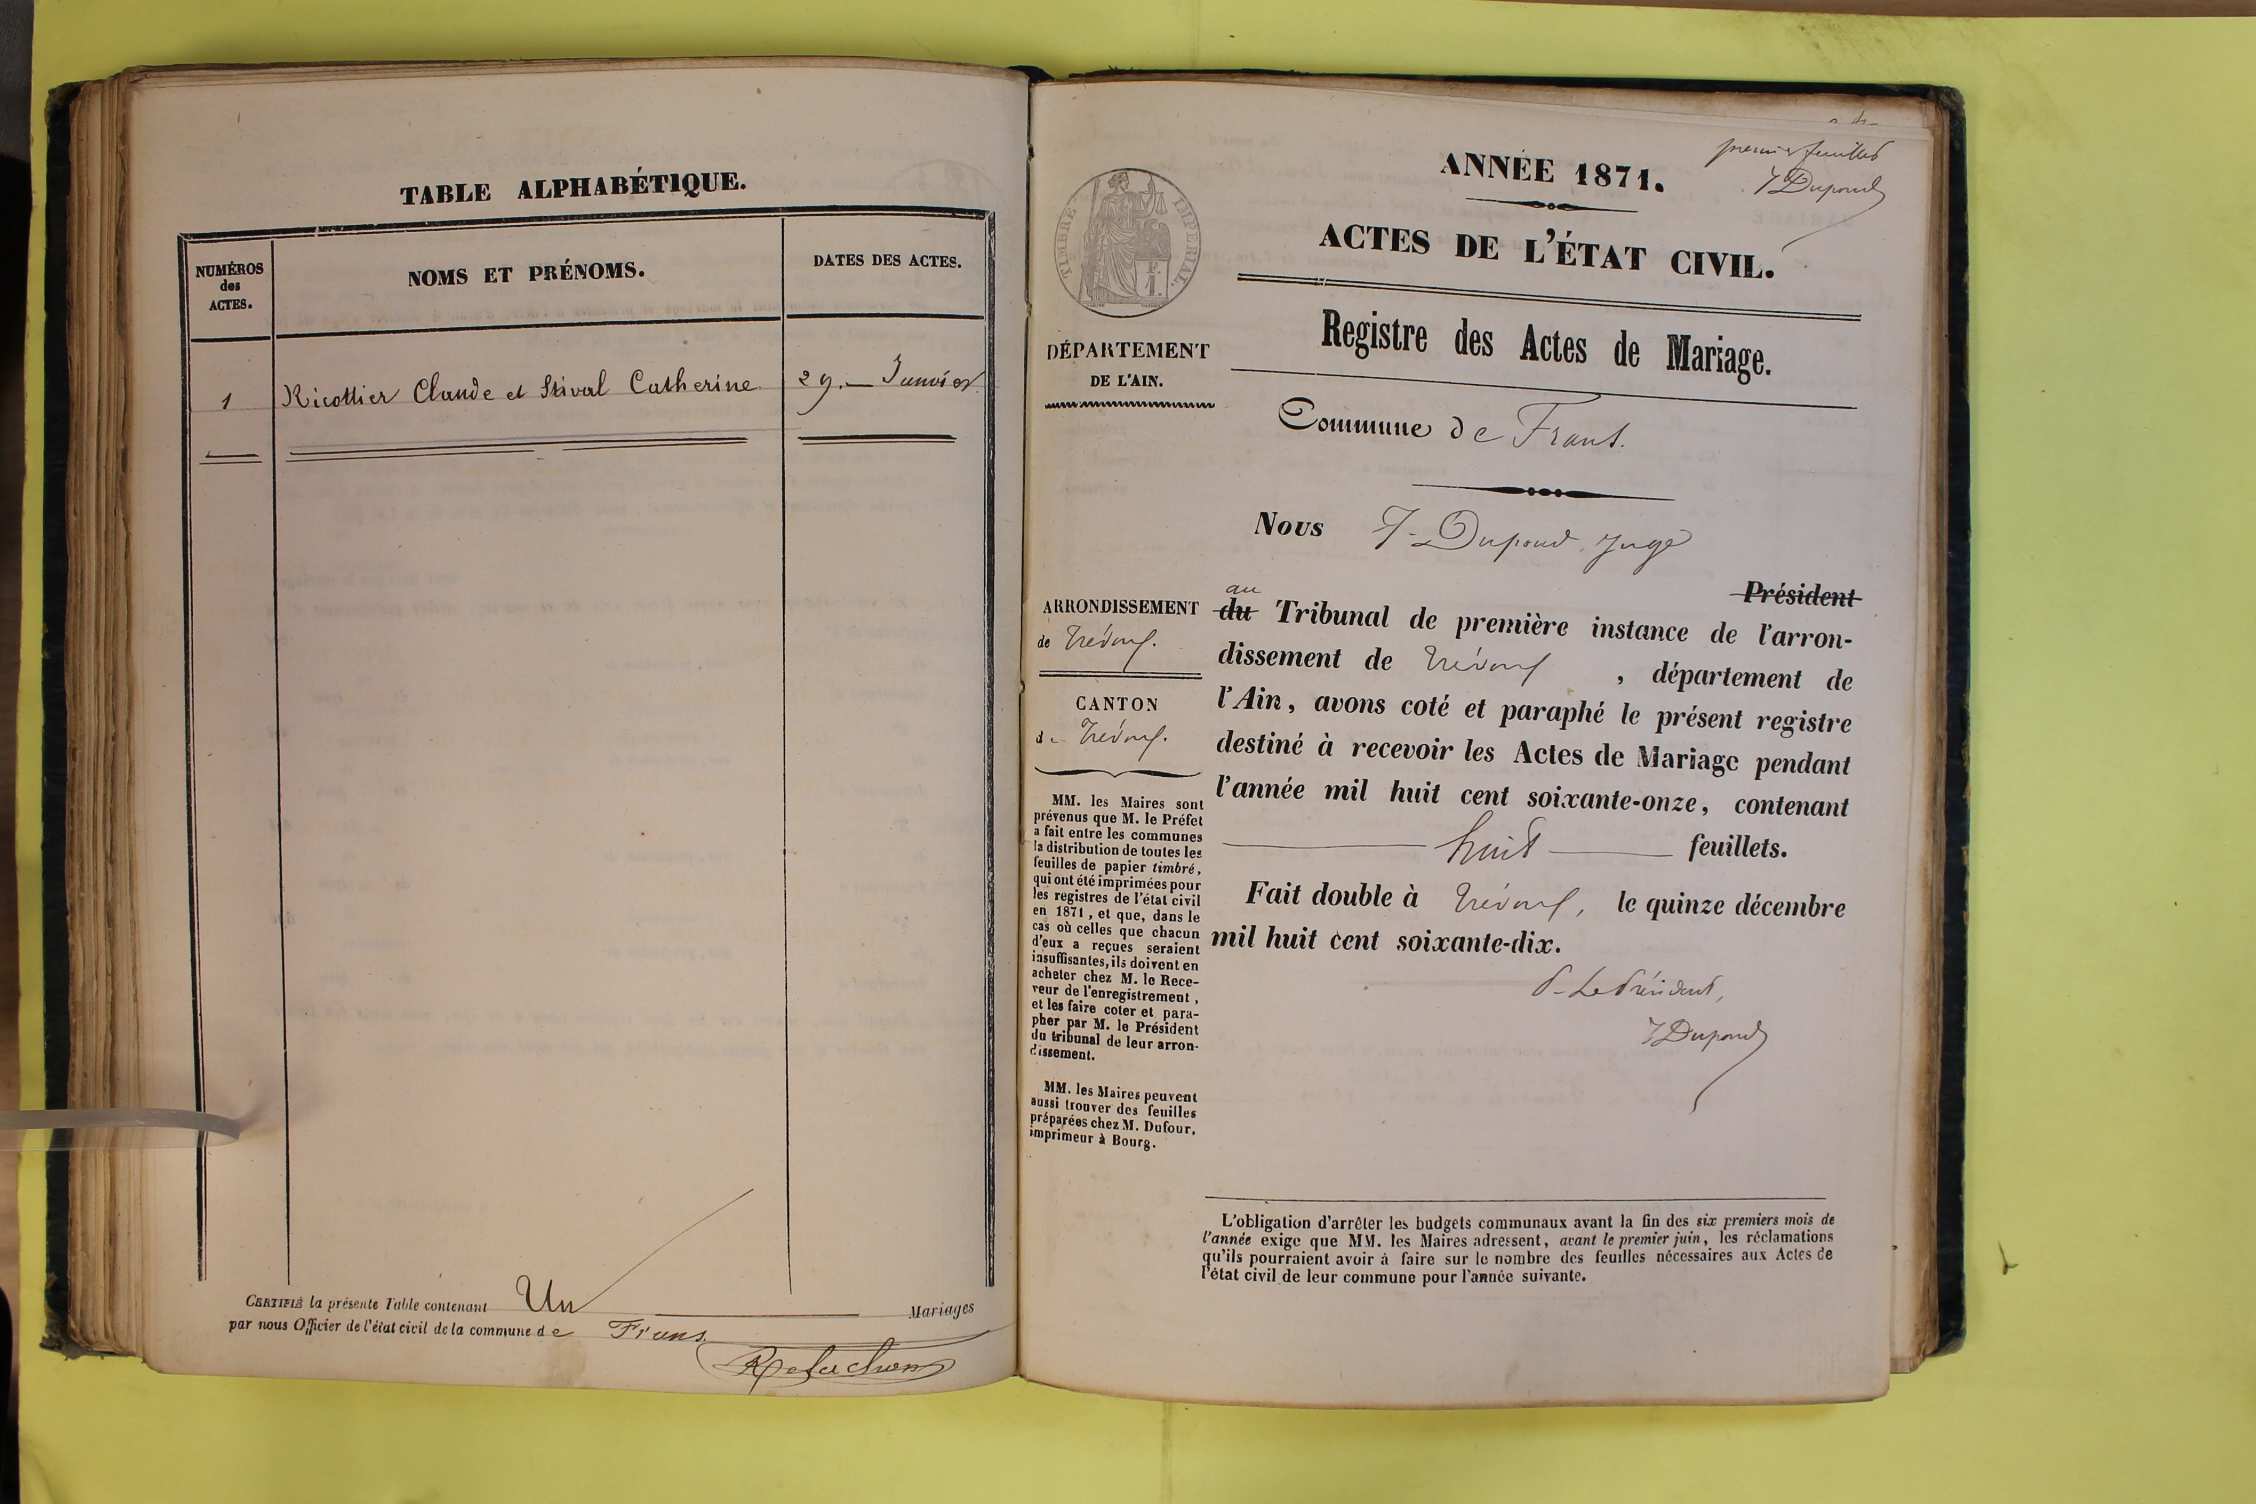 TABLE ALPHABÉTIQUE.
NUMÉROS
des
ACTES.
NOMS ET PRÉNOMS.
DATES DES ACTES.
1 Ricottier Claude et Stival Catherine 29. Janvier
CERTIFIÉ la présente Table contenant Un Mariages
par nous Officier de l'état civil de la commune de Frans
premier feuillet
J Dupond
ANNÉE 1871.
ACTES DE L'ÉTAT CIVIL.
Registre des Actes de Mariage.
TIMBRE IMPERIAL.
F.
1.
DÉPARTEMENT
DE L'AIN.
Commune de Frans.
Nous J. Dupond, Juge
Président
au
du Tribunal de première instance de l'arron-
dissement de Trévoux, département de
l'Ain, avons coté et paraphé le présent registre
destiné à recevoir les Actes de Mariage pendant
l'année mil huit cent soixante-onze, contenant
huit feuillets.
Fait double à Trévoux, le quinze décembre
mil huit cent soixante-dix.
P. Le Président,
J Dupond
ARRONDISSEMENT
de Trévoux.
CANTON
de Trévoux.
MM. les Maires sont
prévenus que M. le Préfet
a fait entre les communes
la distribution de toutes les
feuilles de papier timbré,
qui ont été imprimées pour
les registres de l'état civil
en 1871, et que, dans le
cas où celles que chacun
d'eux a reçues seraient
insuffisantes, ils doivent en
acheter chez M. le Rece-
veur de l'enregistrement,
et les faire coter et para-
pher par M. le Président
du tribunal de leur arron-
dissement.
MM. les Maires peuvent
aussi trouver des feuilles
préparées chez M. Dufour,
imprimeur à Bourg.
L'obligation d'arrêter les budgets communaux avant la fin des six premiers mois de
l'année exige que MM. les Maires adressent, avant le premier juin, les réclamations
qu'ils pourraient avoir à faire sur le nombre des feuilles nécessaires aux Actes de
l'état civil de leur commune pour l'année suivante.